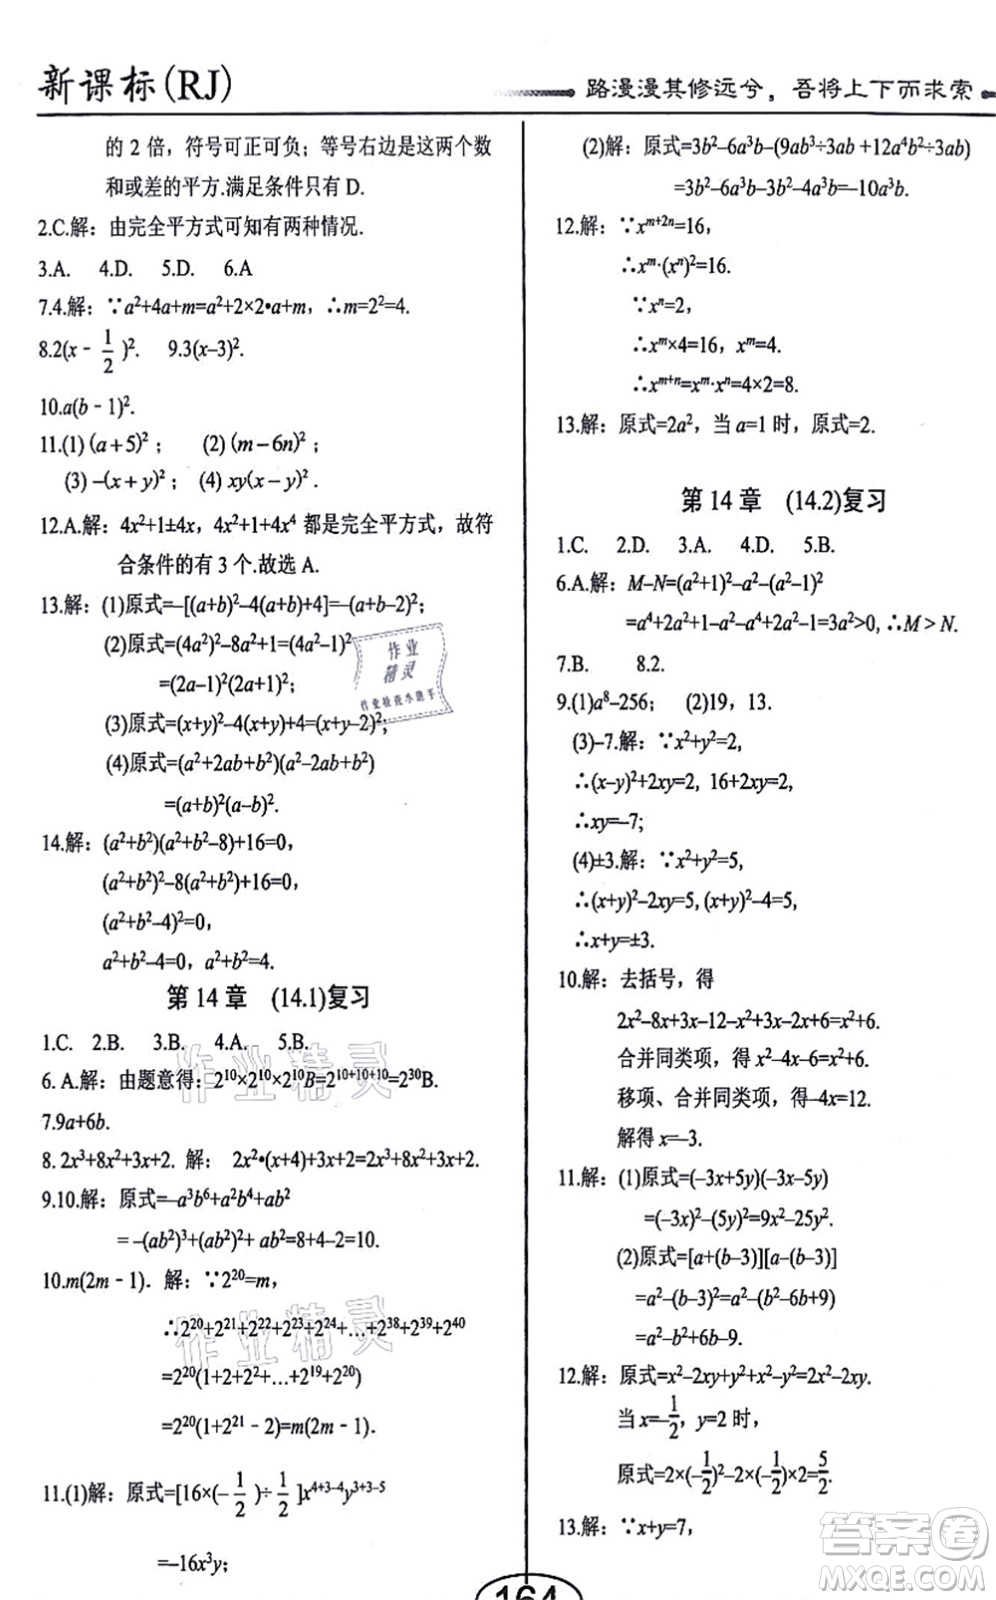 新课标(RJ)
路漫漫其修远兮，吾将上下而求索
的 2 倍，符号可正可负；等号右边是这两个数
和或差的平方.满足条件只有 D.
2.C.解：由完全平方式可知有两种情况.
3.A. 4.D. 5.D. 6.A
7.4.解：∵a²+4a+m=a²+2×2•a+m，∴m=2²=4.
8.2(x - 1/2 )². 9.3(x–3)².
10.a(b - 1)².
11.(1) (a+5)²； (2) (m–6n)²；
(3) –(x+y)²； (4) xy(x–y)².
12.A.解：4x²+1±4x，4x²+1+4x⁴ 都是完全平方式，故符
合条件的有 3 个.故选 A.
13.解：(1)原式=–[(a+b)²–4(a+b)+4]=–(a+b–2)²；
(2)原式=(4a²)²–8a²+1=(4a²–1)²
=(2a–1)²(2a+1)²；
(3)原式=(x+y)²–4(x+y)+4=(x+y–2)²；
(4)原式=(a²+2ab+b²)(a²–2ab+b²)
=(a+b)²(a–b)².
14.解：(a²+b²)(a²+b²–8)+16=0，
(a²+b²)²–8(a²+b²)+16=0，
(a²+b²–4)²=0，
a²+b²–4=0，a²+b²=4.
第 14 章 (14.1)复习
1.C. 2.B. 3.B. 4.A. 5.B.
6. A.解：由题意得：2¹⁰×2¹⁰×2¹⁰B=2¹⁰⁺¹⁰⁺¹⁰=2³⁰B.
7.9a+6b.
8. 2x³+8x²+3x+2. 解： 2x²•(x+4)+3x+2=2x³+8x²+3x+2.
9.10.解：原式=–a³b⁶+a²b⁴+ab²
= –(ab²)³+(ab²)²+ ab²=8+4–2=10.
10.m(2m - 1). 解：∵2²⁰=m，
∴2²⁰+2²¹+2²²+2²³+2²⁴+…+2³⁸+2³⁹+2⁴⁰
=2²⁰(1+2+2²+…+2¹⁹+2²⁰)
=2²⁰(1+2²¹ - 2)=m(2m - 1).
11.(1)解：原式=[16×(- 1/2 )÷ 1/2 ]x⁴⁺³⁻⁴y³⁺³⁻⁵
=–16x³y；
(2)解：原式=3b²–6a³b–(9ab³÷3ab +12a⁴b²÷3ab)
=3b²–6a³b–3b²–4a³b=–10a³b.
12.解：∵xᵐ⁺²ⁿ=16，
∴xᵐ·(xⁿ)²=16.
∵xⁿ=2，
∴xᵐ×4=16，xᵐ=4.
∴xᵐ⁺ⁿ=xᵐ·xⁿ=4×2=8.
13.解：原式=2a²，当 a=1 时，原式=2.
第 14 章 (14.2)复习
1.C. 2.D. 3.A. 4.D. 5.B.
6.A.解：M–N=(a²+1)²–a²–(a²–1)²
=a⁴+2a²+1–a²–a⁴+2a²–1=3a²>0, ∴M > N.
7.B. 8.2.
9.(1)a⁸–256； (2)19，13.
(3)–7.解：∵x²+y²=2，
∴(x–y)²+2xy=2，16+2xy=2，
∴xy=–7；
(4)±3.解：∵x²+y²=5，
∴(x+y)²–2xy=5, (x+y)²–4=5，
∴x+y=±3.
10.解：去括号，得
2x²–8x+3x–12–x²+x–2x+6=x²+6.
合并同类项，得 x²–4x–6=x²+6.
移项、合并同类项，得–4x=12.
解得 x=–3.
11.解：(1)原式=(–3x+5y)(–3x–5y)
=(–3x)²–(5y)²=9x²–25y².
(2)原式=[a+(b–3)][a–(b–3)]
=a²–(b–3)²=a²–(b²–6b+9)
=a²–b²+6b–9.
12.解：原式=x²–2xy+y²+x²–y²=2x²–2xy.
当 x=–1/2，y=2 时，
原式=2×(–1/2)²–2×(–1/2)×2=5/2.
13.解：∵x+y=7，
164
作业
精灵
作业检查小助手
作业精灵
作业精灵
答案卷
MXQE.COM